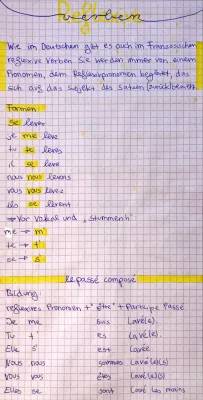 Reflexiv
verben
Wie im Deutschen gibt es auch im Französischen
reflexive Verben. Sie werden immer von einem
Pronomen, dem Reflexivpronomen begleitet, das
sich auf das Subjekt des Satzes zurückbezieht
Formen:
se lever
je me lève
tu te lèves
il se lève
nous nous levons
vous vous levez
ils se lèvent
→ Vor Vokal und „stummen h"
me → m'
te → t'
se → s'
le passé composé
Bildung:
reflexives Pronomen + "être" + Participe Passé
Je me suis lavé(e).
Tu t' es lavé(e).
Elle s' est lavée
Nous nous sommes lavé(e)(s)
Vous vous êtes lavé(e)(s)
Elles se sont lavé les mains